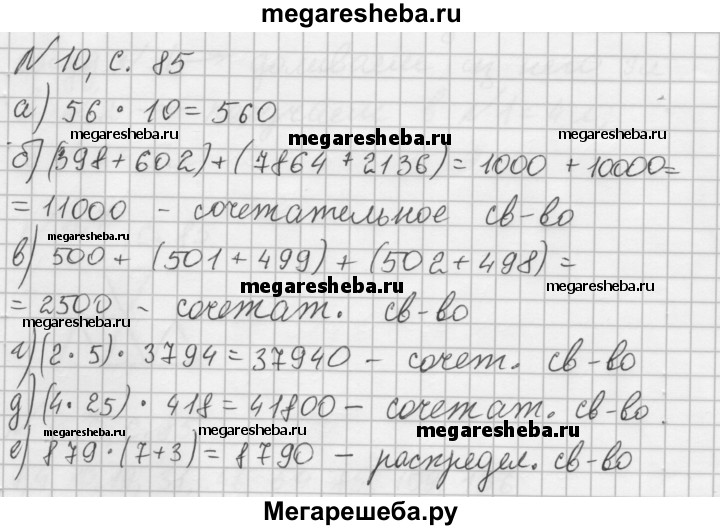 megaresheba.ru
№10, с. 85
а) 56 · 10 = 560
megaresheba.ru megaresheba.ru
б) (398 + 602) + (7864 + 2136) = 1000 + 10000 =
= 11000 - сочетательное св-во
megaresheba.ru
в) 500 + (501 + 499) + (502 + 498) =
megaresheba.ru
= 2500 - сочетат. св-во
megaresheba.ru
г) (2 · 5) · 3794 = 37940 - сочет. св-во
д) (4 · 25) · 418 = 41800 - сочетат. св-во.
megaresheba.ru megaresheba.ru megaresheba.ru
е) 879 · (7 + 3) = 8790 - распредел. св-во
Мегарешеба.ру